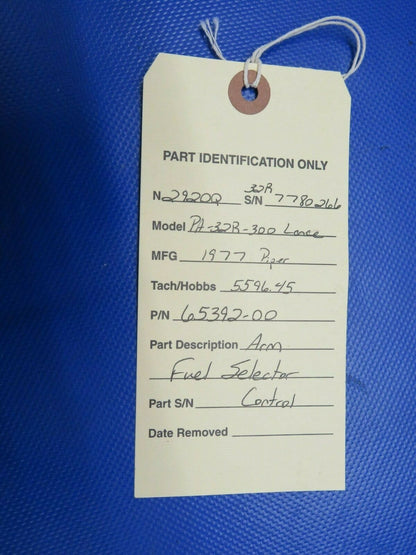 PART IDENTIFICATION ONLY
N 2920Q S/N 32R 7780266
Model PA-32R-300 Lance
MFG 1977 Piper
Tach/Hobbs 5596.45
P/N 65392-00
Part Description Arm
Fuel Selector
Part S/N Control
Date Removed